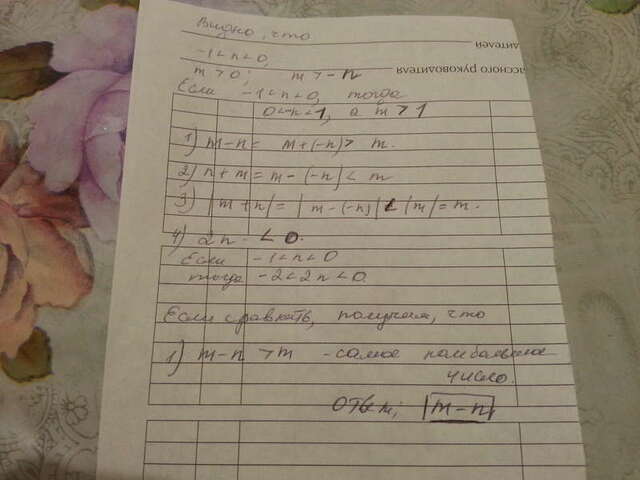 дителей
ассного руководителя
Видно, что
-1<n<0,
m>0; m>-n
Если -1<n<0, тогда
0<-n<1, а m>1
1) m-n = m+(-n)> m.
2) n+m = m-(-n)< m
3) |m+n| = |m-(-n)| < |m| = m.
4) 2n. < 0.
Если -1<n<0
тогда -2<2n<0
Если сравнить, получим, что
1) m-n >m - самое наибольшее
число.
Отв.: |m-n|